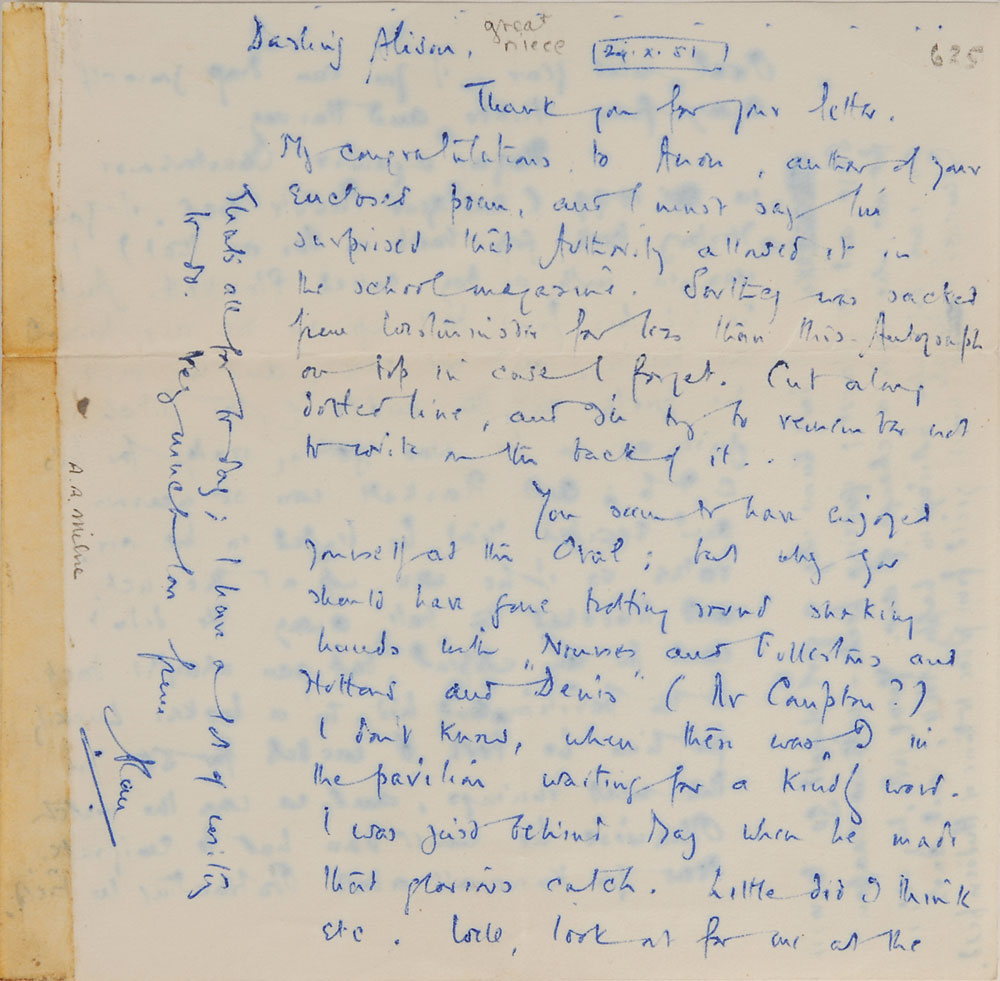 Darling Alison,
great
niece
24.x.51
625
Thank you for your letter.
My congratulations to Anon, author of your
enclosed poem, and I must say I'm
surprised that Authority allowed it in
the school magazine. was sacked
from Westminster for less than this. Autograph
on top in case I forget. Cut along
dotted line, and I'll try to remember not
to write on the back of it...
You seem to have enjoyed
yourself at the Oval; but why you
should have gone trotting round shaking
hands with "Nourses and Tullertons and
Huttons and Denis" (Mr Compton?)
I don't know, when there was I in
the pavilion waiting for a kindly word.
I was just behind May when he made
that glorious catch. Little did I think
etc. Well, look out for me at the
That's all for to-day; I have a lot of writing
to do. Very much love from
Alan
A.A. Milne